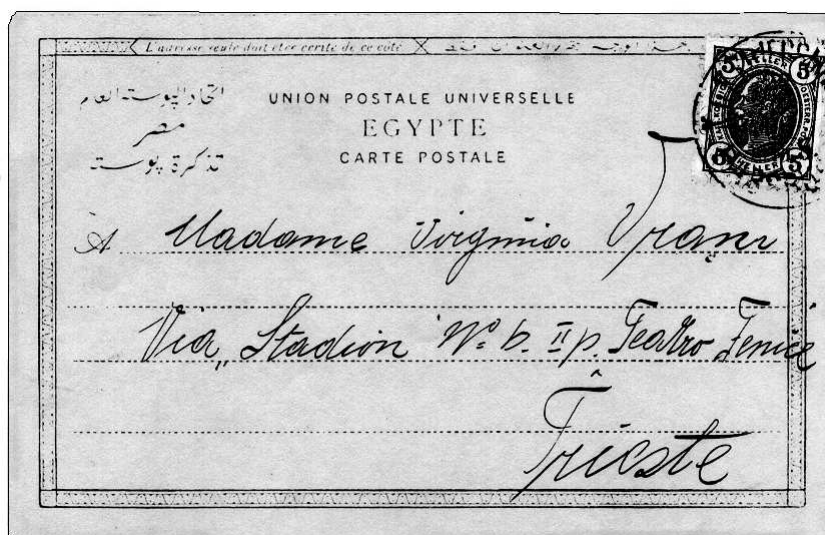 L'adresse seule doit être écrite de ce côté
اتحاد البوستة العام
مصر
تذكرة بوستة
UNION POSTALE UNIVERSELLE
EGYPTE
CARTE POSTALE
5 HELLER 5
5 HELLER 5
A Madame Virginia
Via „Stadion" Nº 6. II p. Teatro Fenice
à
Trieste